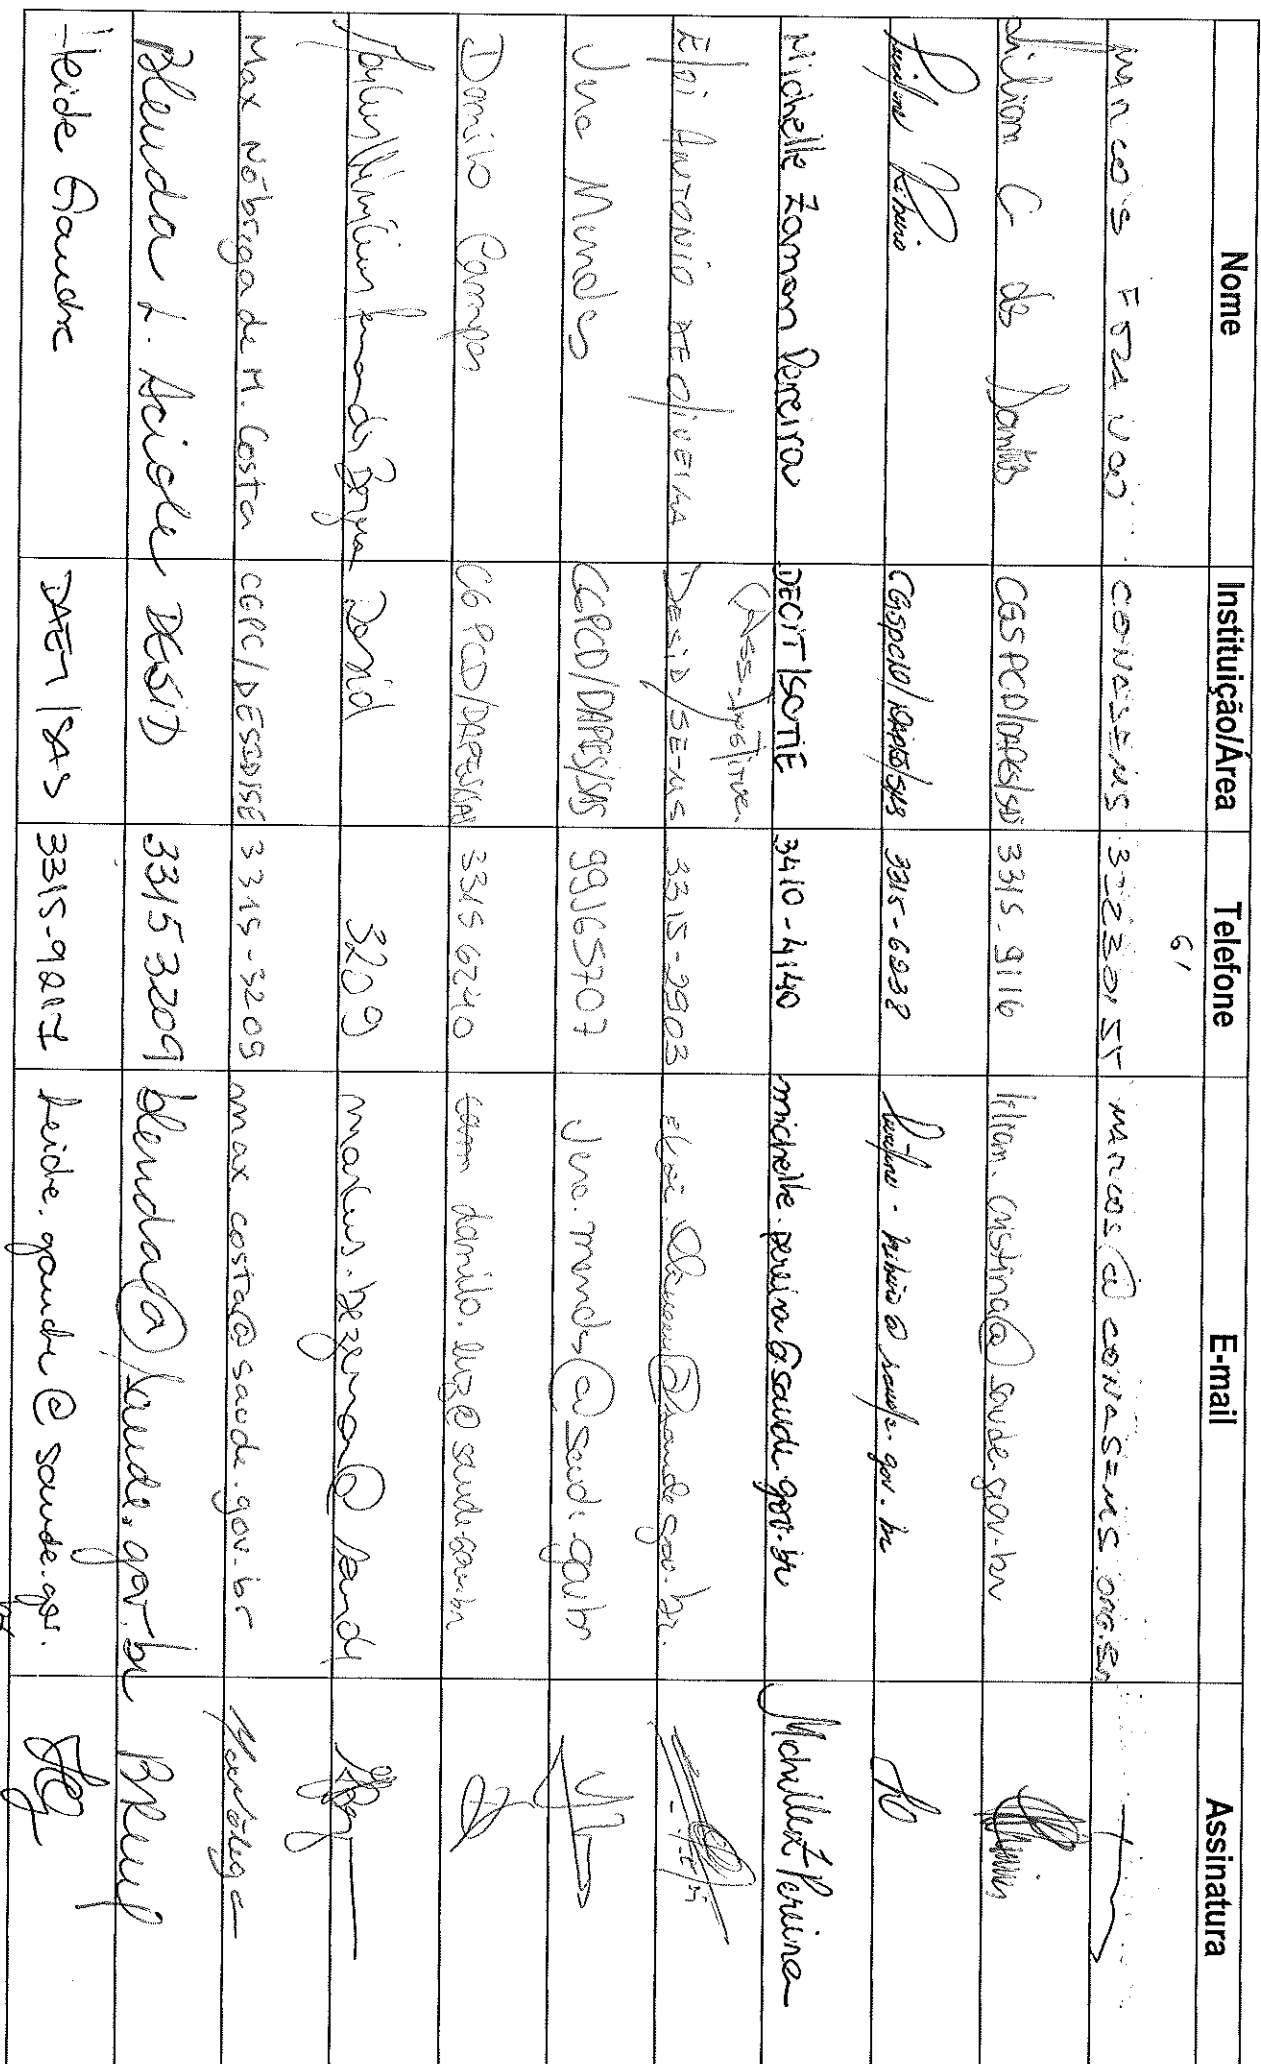 Nome Instituição/Área Telefone E-mail Assinatura
MARCOS FRANCO CONASEMS 61 32230155 marcos@CONASEMS.ORG.BR
Lilian C dos Santos CGSPCD/DAPES/SAS 3315-9116 lilian.cristina@saude.gov.br
Ribeiro CGSPCD/DAPES/SAS 3315-6238 ribeiro@saude.gov.br
Michelle Zamam Pereira DECIT/SCTIE 3410-4140 michelle.pereira@saude.gov.br Michelle Z Pereira
Eloi ANTONIO DE OLIVEIRA DESID/SE-MS 3315-2903 eloi.oliveira@saude.gov.br.
Juna Mendes CGPCD/DAPES/SAS 99165707 juna.mendes@saude.gov.br
Danilo Campos CGPCD/DAPES/SAS 33156240 danilo.luiz@saude.gov.br
Marcus Vinícius Fernandes Bezerra Desid 3209 marcus.bezerra@saude
Max Nóbrega de M. Costa CGPC/DESID/SE 3315-3209 max.costa@saude.gov.br
Blenda L. DESID 33153209 blenda@saude.gov.br
Heide Gauche DAET/SAS 3315-9217 heide.gauche@saude.gov.